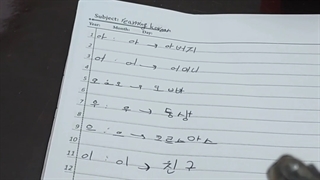 Subject: Learning korean
Year: Month: Day:
1 아 : 아 → 아버지
2
3 어 : 어 → 어머니
4
5 오 : 오 → 오빠
6
7 우 : 우 → 동생
8
9 으 : 으 → 으르스아스
10
11 이 : 이 → 친구
12